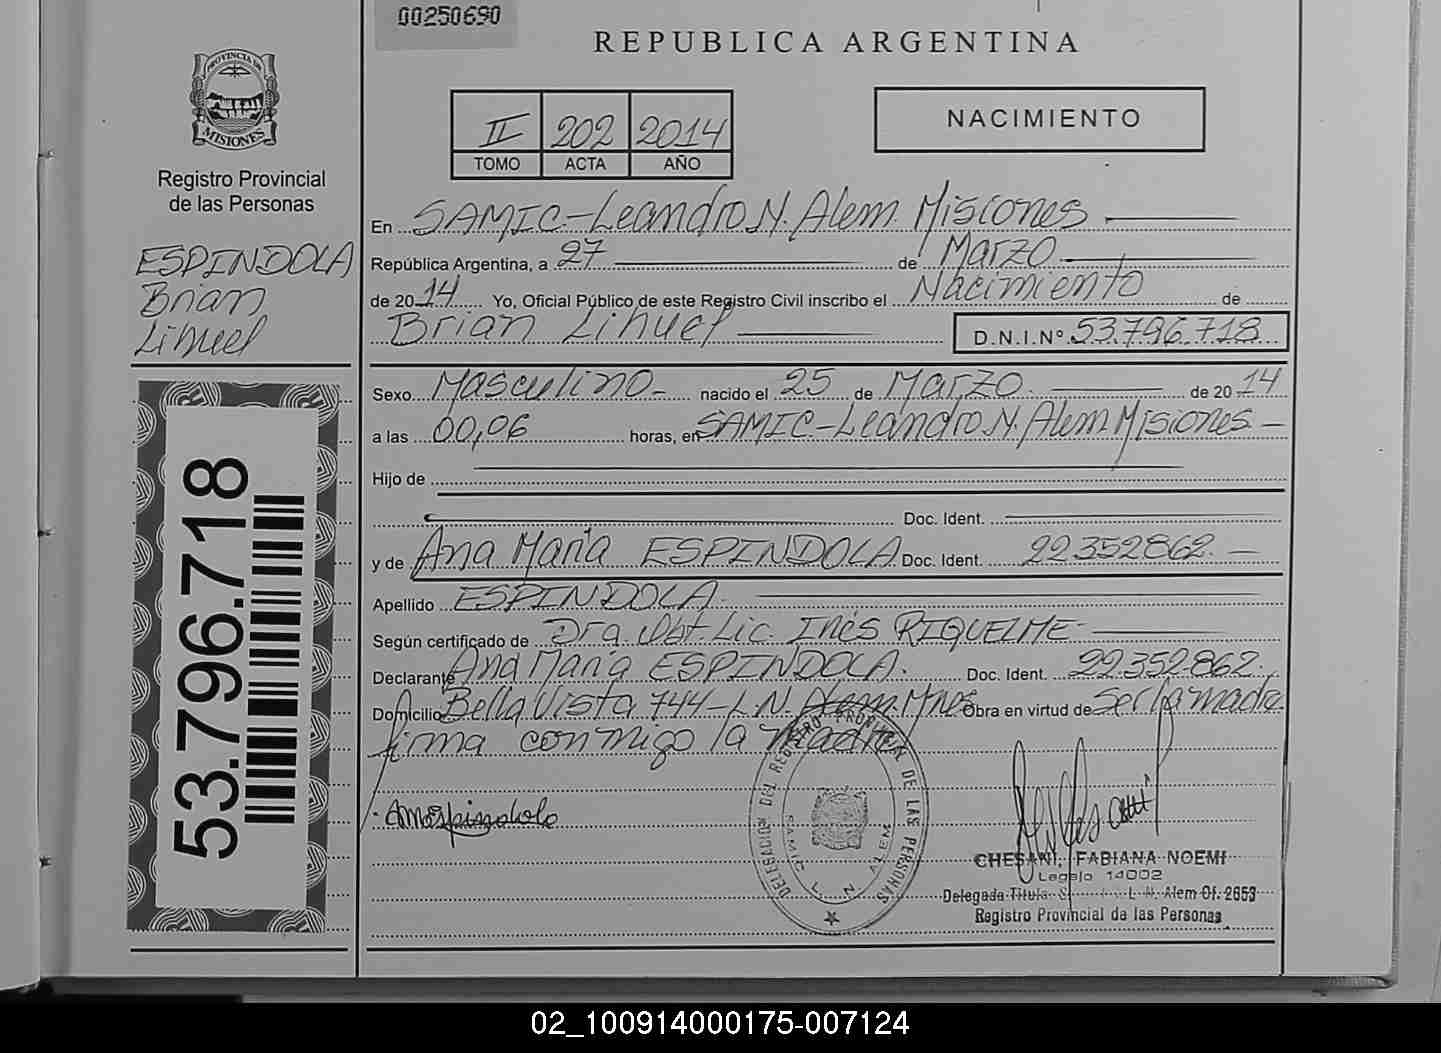 00250690
REPUBLICA ARGENTINA
PROVINCIA DE
MISIONES
Registro Provincial
de las Personas
II 202 2014
TOMO ACTA AÑO
NACIMIENTO
ESPINDOLA
Brian
Lihuel
En SAMIC-Leandro N. Alem. Misiones
República Argentina, a 27 de Marzo
de 2014 Yo, Oficial Público de este Registro Civil inscribo el Nacimiento de
Brian Lihuel D.N.I.Nº 53.796.718
Sexo Masculino nacido el 25 de Marzo de 2014
a las 00,06 horas, en SAMIC-Leandro N. Alem Misiones
Hijo de
Doc. Ident.
y de Ana Maria ESPINDOLA Doc. Ident. 22.352862.
Apellido ESPINDOLA.
Según certificado de Dra. Obt. Lic. Inés RIQUELME
Declarante Ana Maria ESPINDOLA. Doc. Ident. 22.352.862.
Domicilio Bella Vista 744-L.N. Alem. Mnes Obra en virtud de Ser la madre
firma conmigo la madre
53.796.718
AmEspindola
DELEGACION DEL REGISTRO PROVINCIAL DE LAS PERSONAS
SAMIC L. N. ALEM
CHESANI, FABIANA NOEMI
Legajo 14002
Delegada Titular L. N. Alem Of. 2653
Registro Provincial de las Personas
02_100914000175-007124